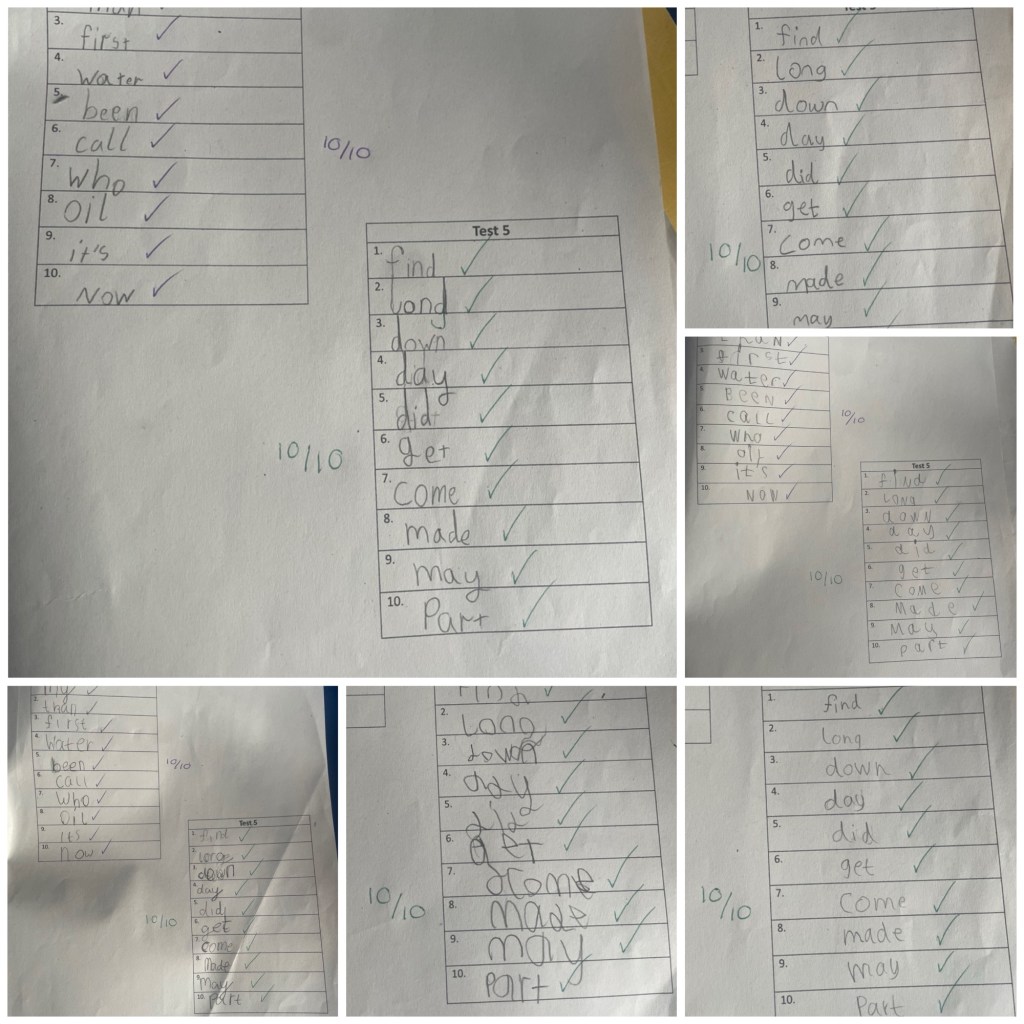 3. first ✓
4. water ✓
5. been ✓
6. call ✓
7. who ✓
8. oil ✓
9. it's ✓
10. Now ✓
10/10
Test 5
1. find ✓
2. long ✓
3. down ✓
4. day ✓
5. did ✓
6. get ✓
7. Come ✓
8. made ✓
9. may ✓
10. Part ✓
10/10
1. find ✓
2. long ✓
3. down ✓
4. day ✓
5. did ✓
6. get ✓
7. Come ✓
8. made ✓
9. may ✓
10/10
3. first ✓
4. water ✓
5. BEEN ✓
6. CALL ✓
7. Who ✓
8. oil ✓
9. it's ✓
10. NOW ✓
10/10
Test 5
1. find ✓
2. Long ✓
3. down ✓
4. day ✓
5. did ✓
6. get ✓
7. Come ✓
8. Made ✓
9. May ✓
10. part ✓
10/10
my ✓
2. than ✓
3. first ✓
4. Water ✓
5. been ✓
6. call ✓
7. Who ✓
8. OIL ✓
9. it's ✓
10. Now ✓
10/10
Test 5
1. find ✓
2. long ✓
3. down ✓
4. day ✓
5. did ✓
6. get ✓
7. Come ✓
8. Made ✓
9. May ✓
10. Part ✓
10/10
find ✓
2. Long ✓
3. down ✓
4. day ✓
5. did ✓
6. get ✓
7. come ✓
8. made ✓
9. may ✓
10. part ✓
10/10
1. find ✓
2. long ✓
3. down ✓
4. day ✓
5. did ✓
6. get ✓
7. Come ✓
8. made ✓
9. may ✓
10. Part ✓
10/10